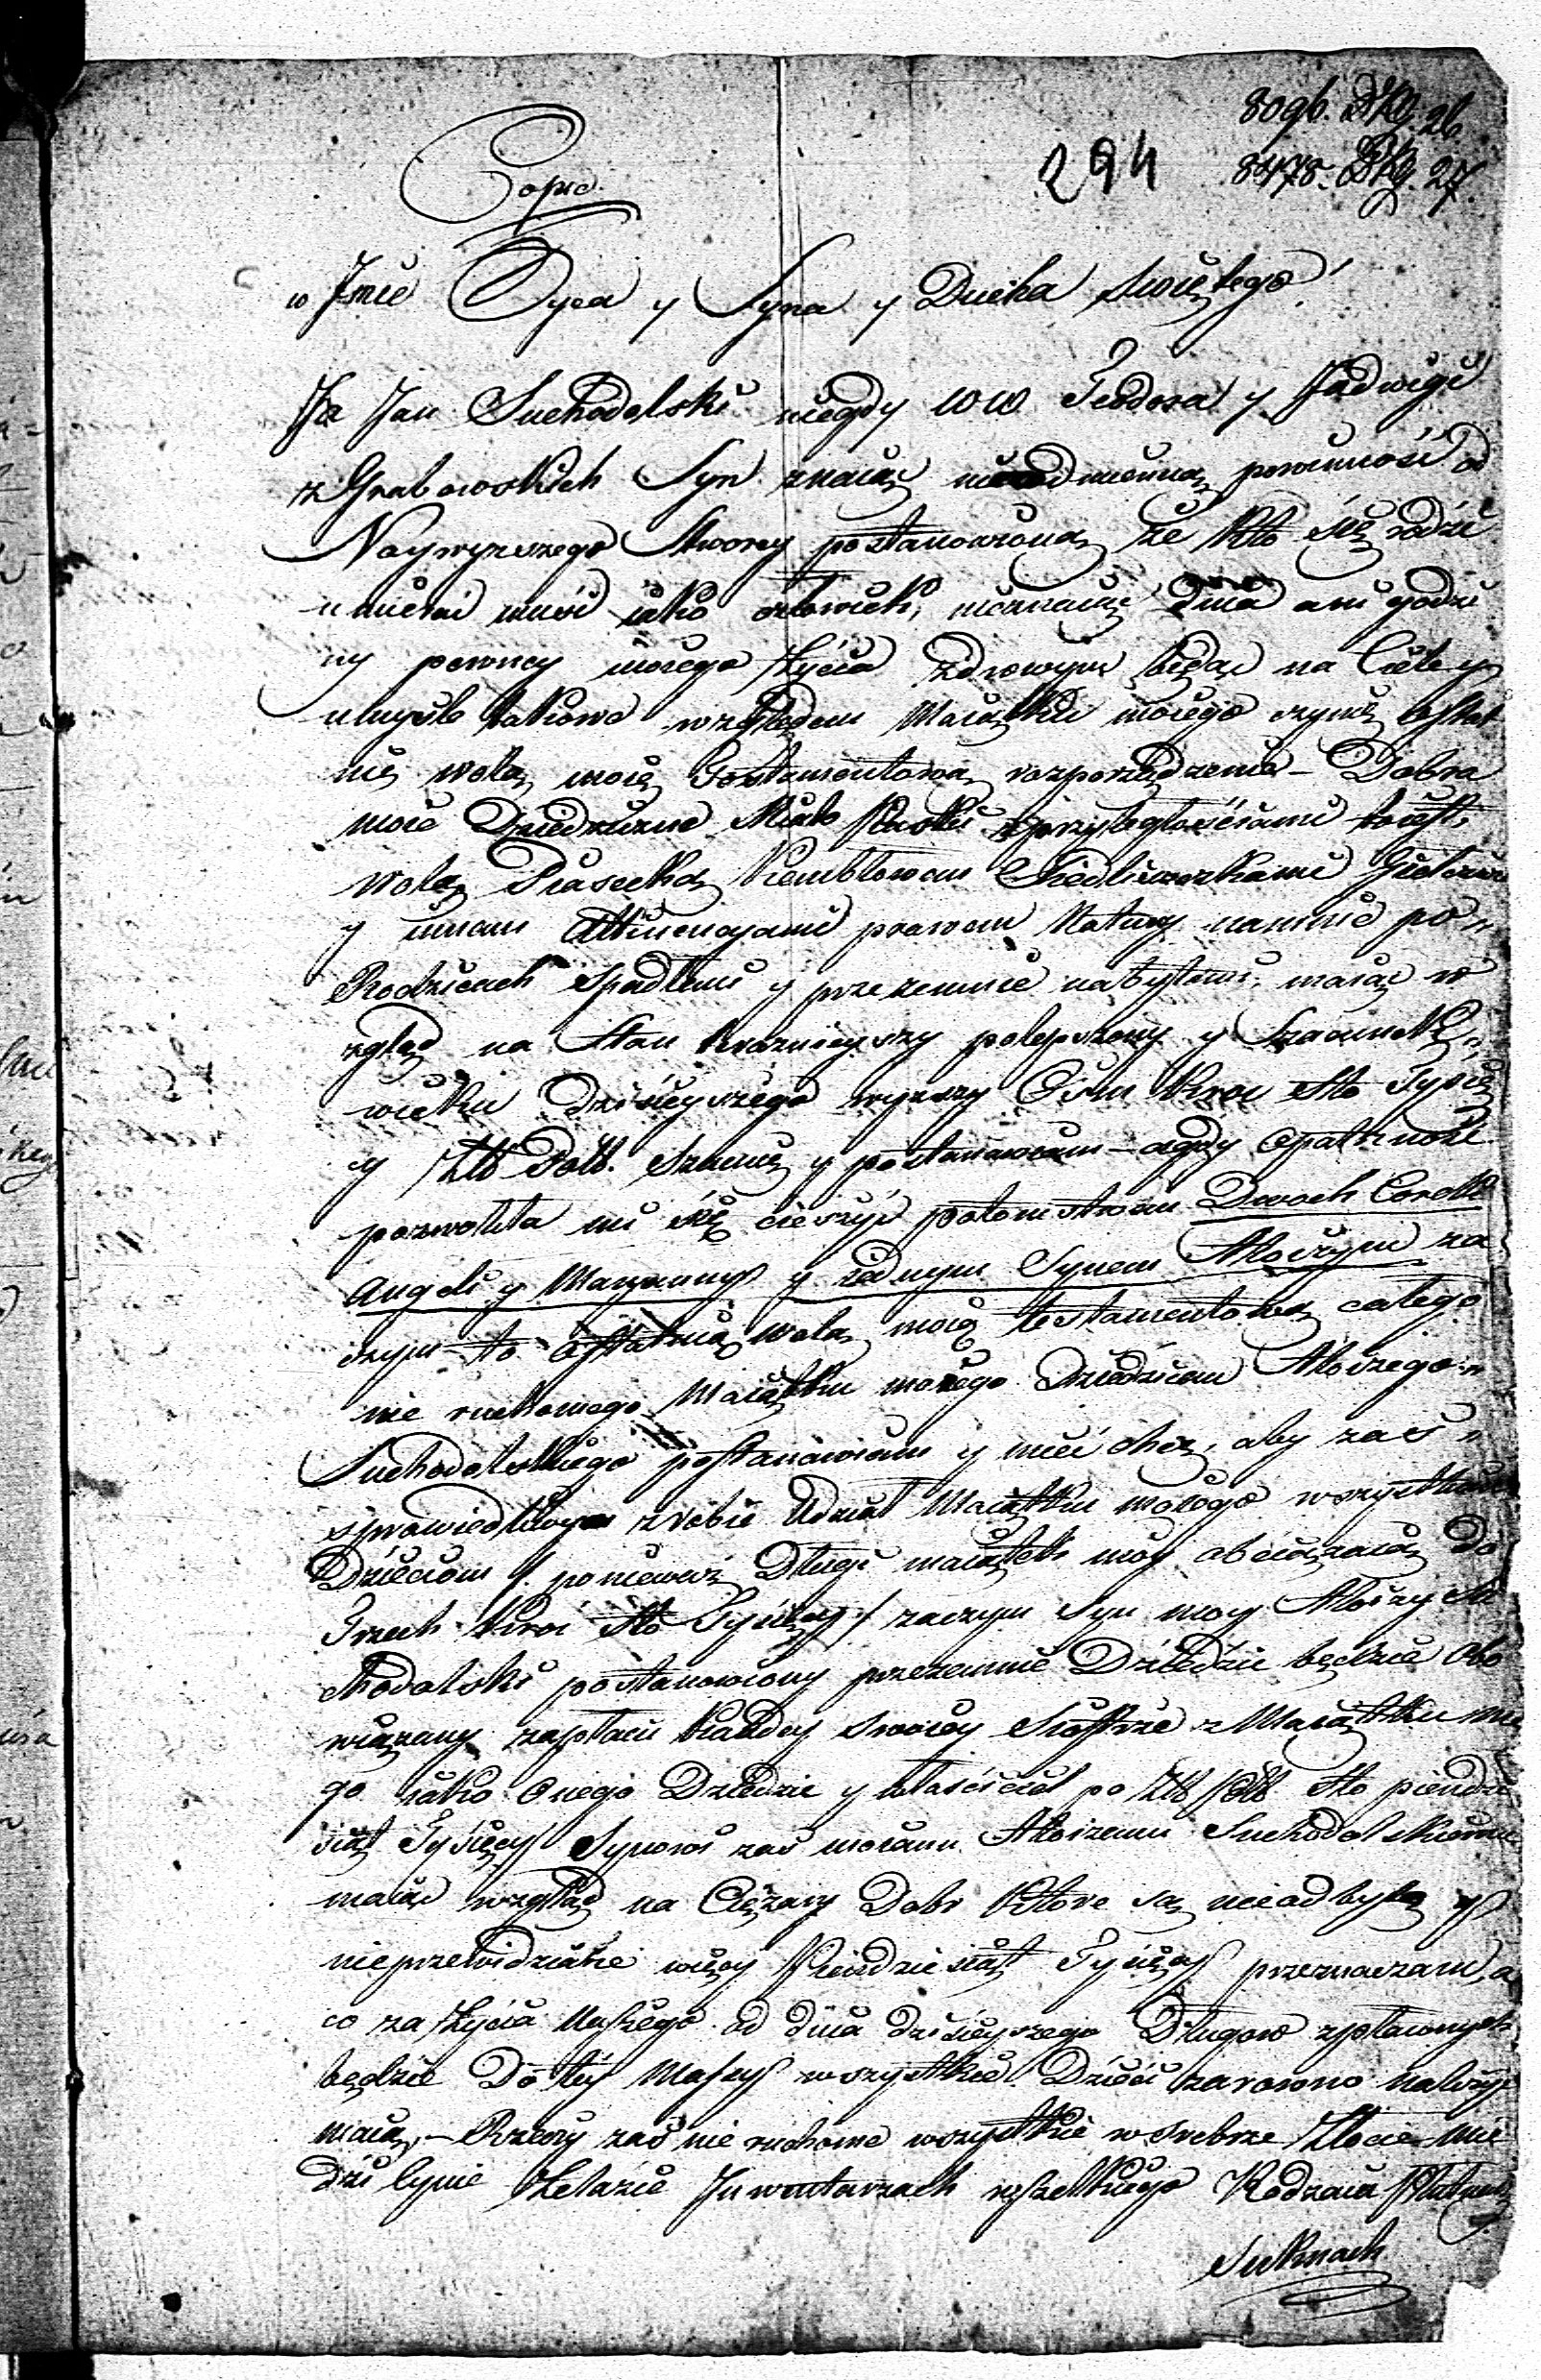 8096. DKg. 26
294 8478. DKg. 27.
Copia
w Jmie Oyca y Syna y Ducha Swiętego!
Ja Jan Suchodolski niegdy WW Teodora y Jadwigi
z Grabowskich Syn znaiąc nieodmienną powinność od
Naywyższego Stworcy postanowioną że kto się rodzi
umierać musi iako człowiek, nieznaiąc dnia ani godzi
ny pewney moiego życia zdrowym będąc na Ciele y
umyśle takowe względem Maiątku moiego czynię ostat
nią wolą moią Testamentową rozporządzenie - Dobra
moie Dziedziczne Miasto Piaski z przyległościami toiest,
Wolą Piasecką Kembłowem Siedliszczkami
y innemi Attinencyami prawem Natury namnie po "
Rodzicach Spadłemi y przezemnie nabytemi, maiąc w
zgląd na Stan teraznieyszy polepszony y Szacunek "
wieku dzisieyszego wyższy Ośm kroć Sto Tysię
cy Złł Poll. Szacuię y postanawiam - a gdy Opatrzność
pozwoliła mi się cieszyć potomstwem Dwoch Corek
Angeli y Maryanny y iednym Synem Aloizym za
czym to ostatnią wolą moią testamentową całego
nie ruchomego Maiątku moiego Dziedzicem Aloizego "
Suchodolskiego postanawiam y mieć chcę, aby zaś "
sprawiedliwy zrobić Udział Maiątku moiego wszystkim
Dzieciom /: ponieważ Długi maiątek moy obciążaią Do
Trzech kroć Sto Tysięcy :/ zaczym Syn moy Aloizy Su
chodolski postanowiony przezemnie Dziedzic będzie obo
wiązany zapłacić każdey swoiey Siostrze z Maiątku me
go iako Onego Dziedzic y właściciel po Złł Poll Sto piendzie
siąt Tysięcy Synowi zaś moiemu Aloizemu Suchodolskiemu
maiąc wzgląd na Ciężary Dobr które są nieodbyte y
nieprzewidziane więcy Piendziesiąt Tysięcy przeznaczam, a
co za życia Naszego od dnia dzisieyszego Długow zpłaconych
będzie Do tey Massy wszystkie Dzieci zarowno należyć
maią, - Rzeczy zaś nie ruchome wszystkie w Srebrze Złocie Mie
dzi Cynie Żelazie Jnwentarzach wszelkiego Rodzaiu
Sukniach